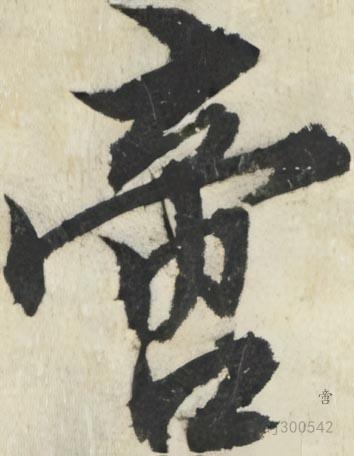 啻
啻
j300542